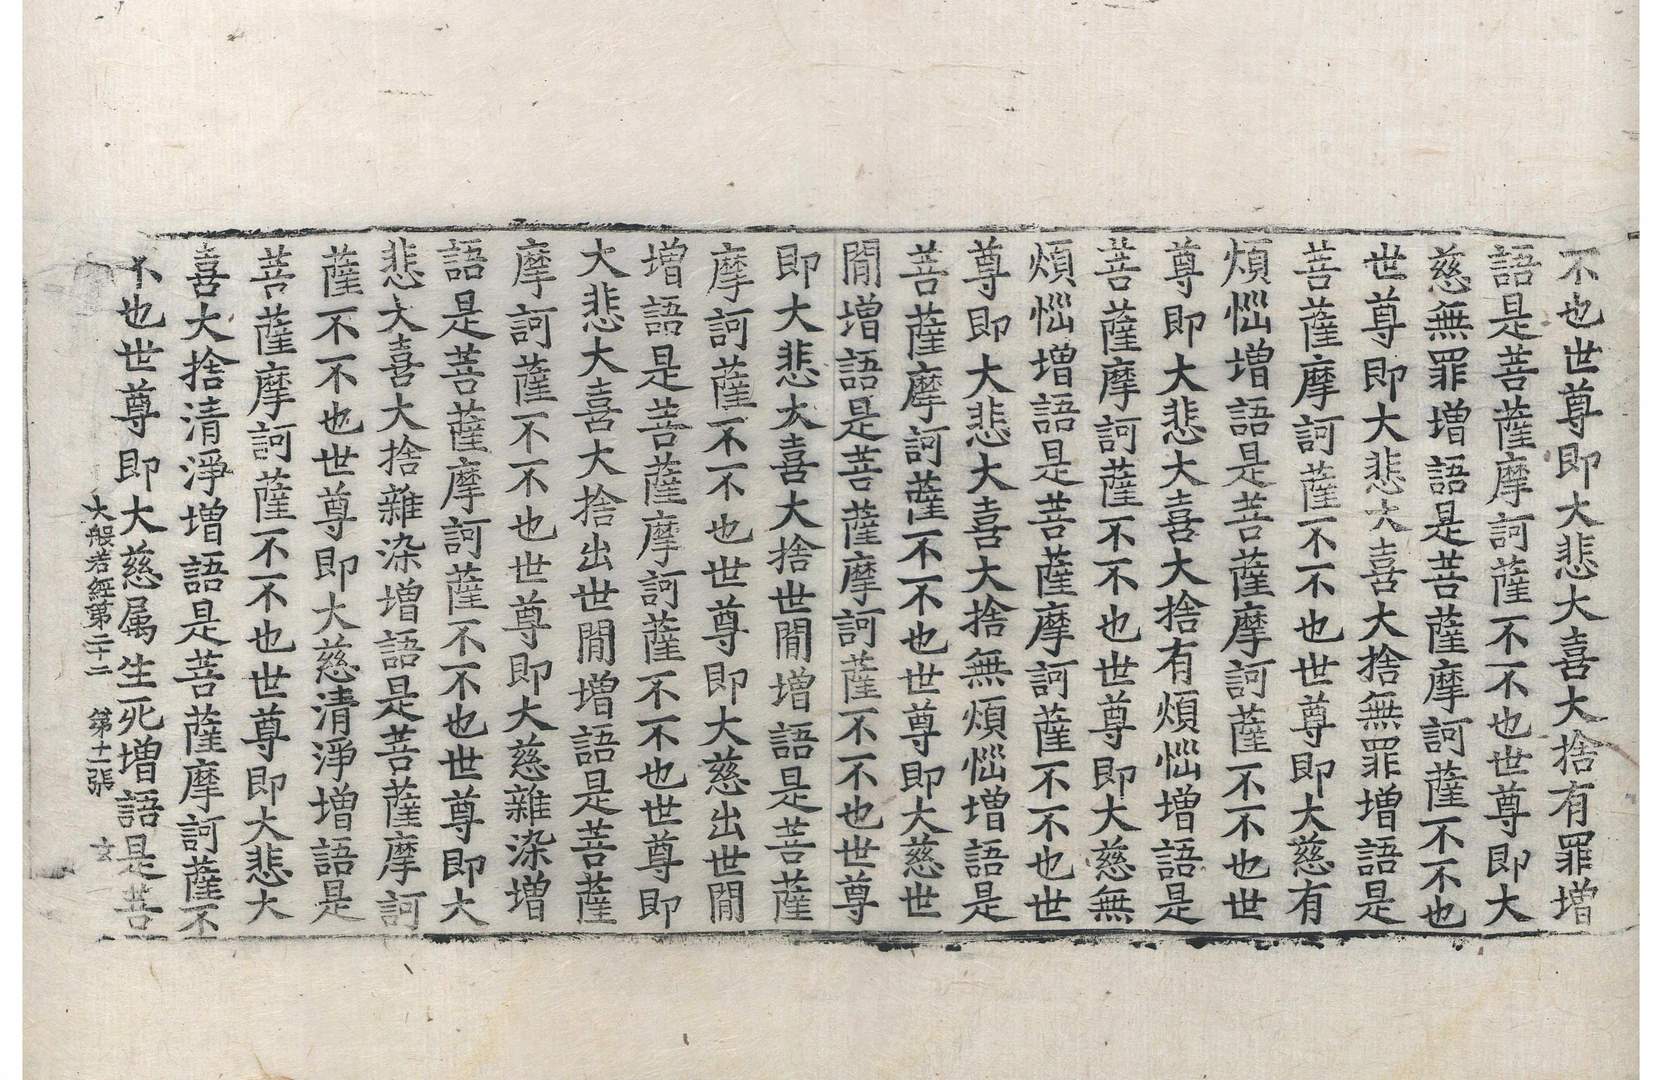 不也世尊即大悲大喜大捨有罪增
語是菩薩摩訶薩不不也世尊即大
慈無罪增語是菩薩摩訶薩不不也
世尊即大悲大喜大捨無罪增語是
菩薩摩訶薩不不也世尊即大慈有
煩惱增語是菩薩摩訶薩不不也世
尊即大悲大喜大捨有煩惱增語是
菩薩摩訶薩不不也世尊即大慈無
煩惱增語是菩薩摩訶薩不不也世
尊即大悲大喜大捨無煩惱增語是
菩薩摩訶薩不不也世尊即大慈世
閒增語是菩薩摩訶薩不不也世尊
即大悲大喜大捨世閒增語是菩薩
摩訶薩不不也世尊即大慈出世閒
增語是菩薩摩訶薩不不也世尊即
大悲大喜大捨出世閒增語是菩薩
摩訶薩不不也世尊即大慈雜染增
語是菩薩摩訶薩不不也世尊即大
悲大喜大捨雜染增語是菩薩摩訶
薩不不也世尊即大慈清淨增語是
菩薩摩訶薩不不也世尊即大悲大
喜大捨清淨增語是菩薩摩訶薩不
不也世尊即大慈属生死增語是菩
大般若經第二十二 第十二張 玄